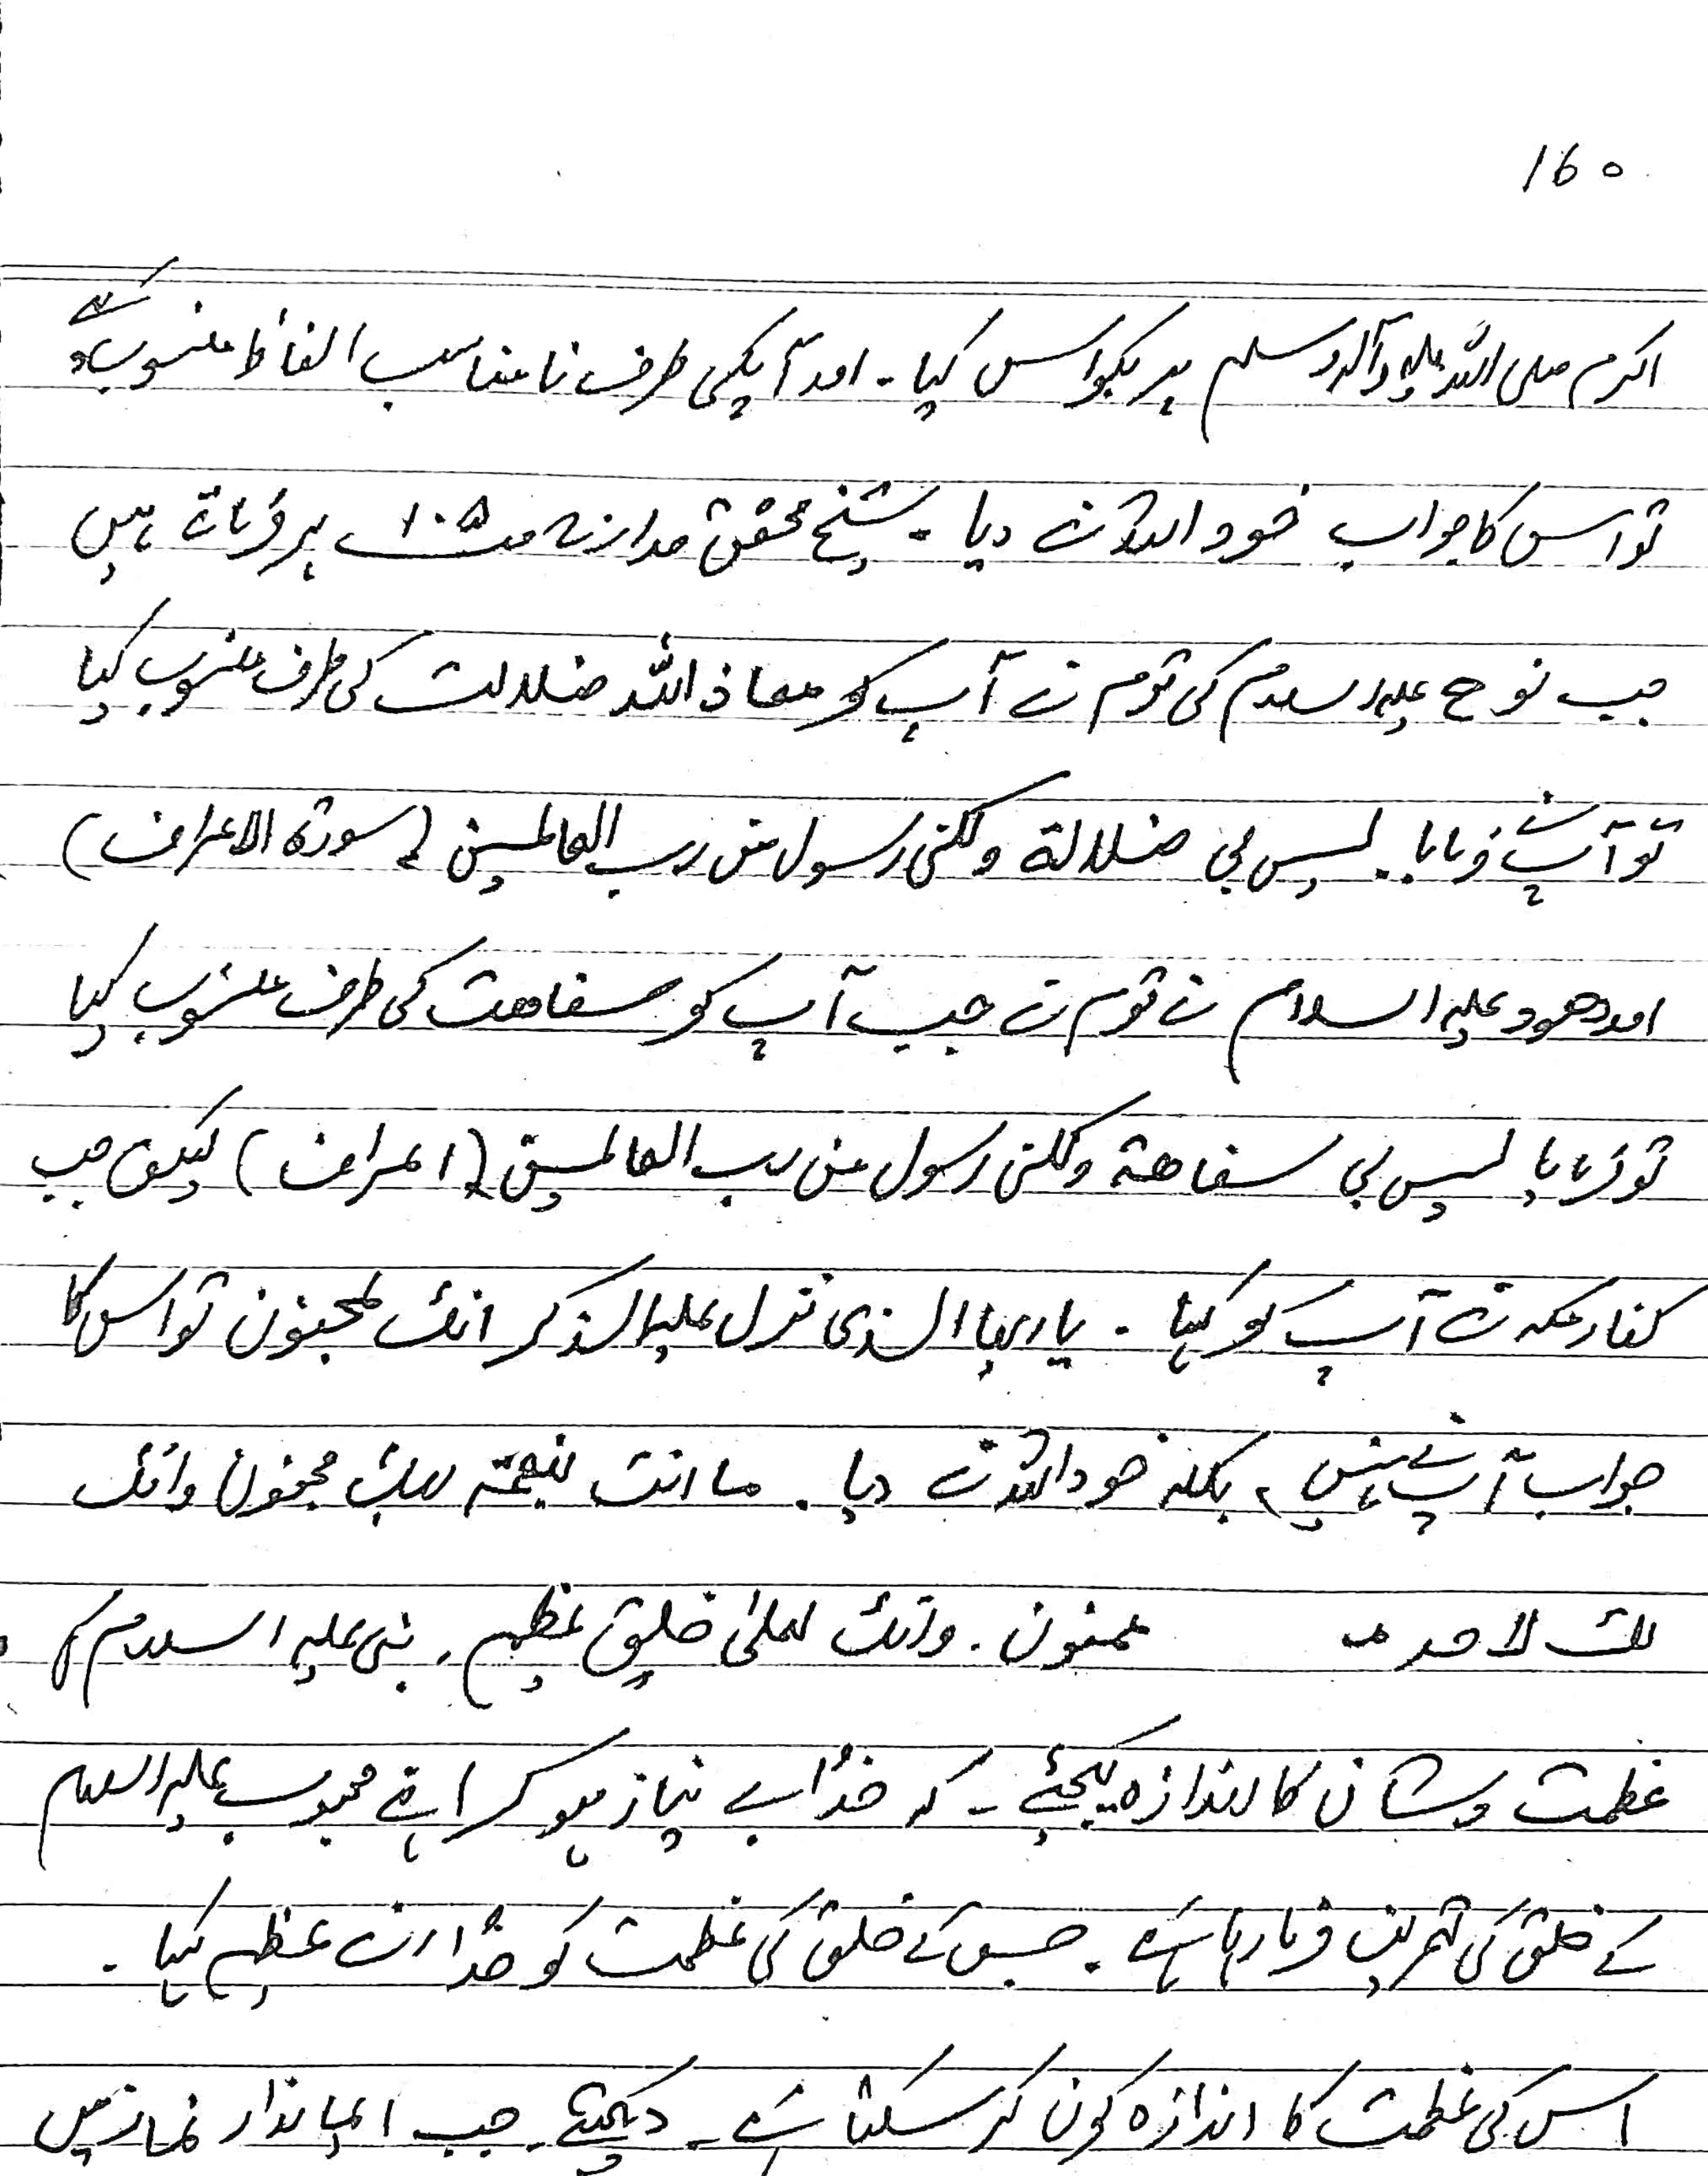 160
اکرم صلی اللہ علیہ وآلہ وسلم پر بکواس کیا ۔ اور آپکی طرف نا مناسب الفاظ منسوب کئے
تو اس کا جواب خود اللہ نے دیا ۔ شیخ محقق مدارج ص ۱۰۵ پر فرماتے ہیں
جب نوح علیہ السلام کی قوم نے آپ کو معاذ اللہ ضلالت کی طرف منسوب کیا
تو آپ نے فرمایا ۔ لیس بی ضلالة ولکنی رسول من رب العالمین (سورة الاعراف)
اور ھود علیہ السلام نے قوم نے جب آپ کو سفاھت کی طرف منسوب کیا
تو فرمایا لیس بی سفاھة ولکنی رسول من رب العالمین (اعراف) لیکن جب
کفار مکہ نے آپ کو کہا ۔ یا ایہا الذی نزل علیہ الذکر انک لمجنون تو اس کا
جواب آپ نے نہیں ، بلکہ خود اللہ نے دیا ۔ ما انت بنعمة ربک مجنون وانک
لک لاجر ممنون ۔ وانک لعلیٰ خلیق عظیم ۔ نبی علیہ السلام کی
عظمت و شان کا اندازہ کیجئے ۔ کہ خدا بے نیاز ہو کر اپنے محبوب علیہ السلام
کے خلق کی تعریف فرما رہا ہے ۔ جس کے خلق کی عظمت کو خدا نے عظیم کہا ۔
اس کی عظمت کا اندازہ کون کر سکتا ہے ۔ دیکھئے جب ایماندار نماز میں